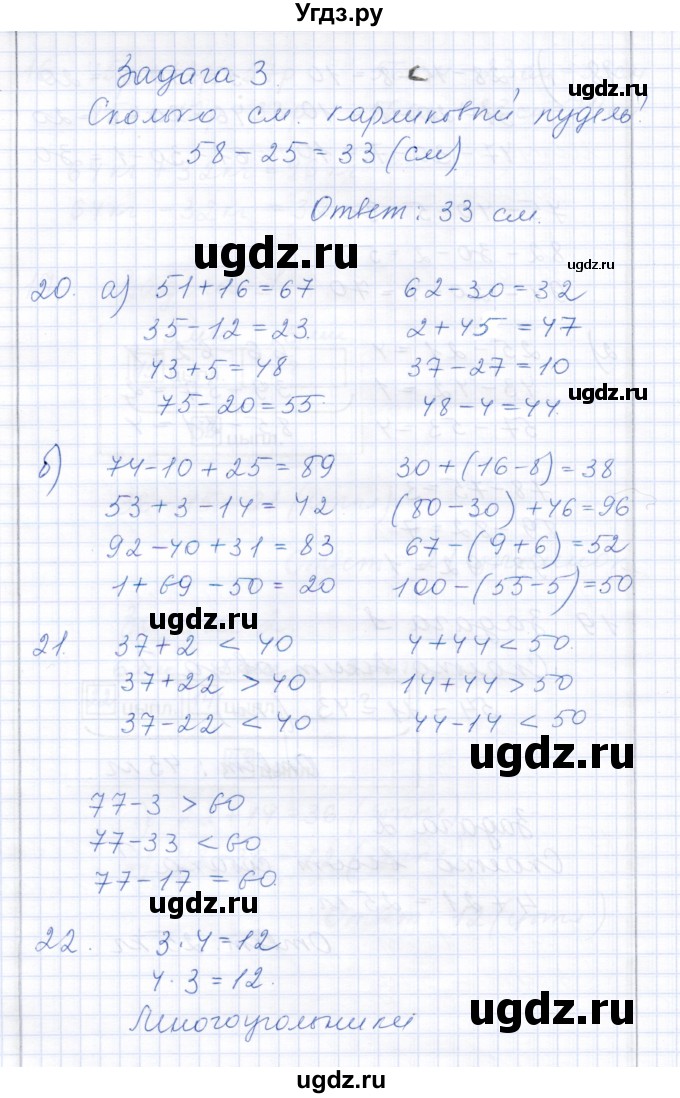 Угдз.ру
Задача 3. с
ugdz.ru
Сколько см. карликовый пудель?
58 - 25 = 33 (см)
ugdz.ru
Ответ: 33 см.
ugdz.ru
ugdz.ru
20. а) 51 + 16 = 67 62 - 30 = 32
35 - 12 = 23. 2 + 45 = 47
43 + 5 = 48 37 - 27 = 10
75 - 20 = 55 48 - 4 = 44.
ugdz.ru
б) 74 - 10 + 25 = 89 30 + (16 - 8) = 38
53 + 3 - 14 = 42 (80 - 30) + 46 = 96
92 - 40 + 31 = 83 67 - (9 + 6) = 52
1 + 69 - 50 = 20 100 - (55 - 5) = 50
ugdz.ru
21. 37 + 2 < 40 4 + 44 < 50.
37 + 22 > 40 14 + 44 > 50
37 - 22 < 40 44 - 14 < 50
ugdz.ru
77 - 3 > 60
77 - 33 < 60
77 - 17 = 60.
ugdz.ru
22. 3 · 4 = 12
4 · 3 = 12.
ugdz.ru
Многоугольники
ugdz.ru